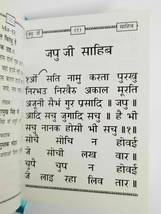 जपु जी
१११
साहिब
जपु जी साहिब
१ओं सति नामु करता पुरखु
निरभउ निरवैरु अकाल मूरति
अजूनी सैभं गुर प्रसादि ॥ जपु ॥
आदि सचु जुगादि सचु ॥ है
भी सचु नानक होसी भी सचु ॥१॥
सोचै सोचि न होवई
जे सोची लख वार ॥
चुपै चुप न होवई
जे लाइ रहा लिव तार ॥